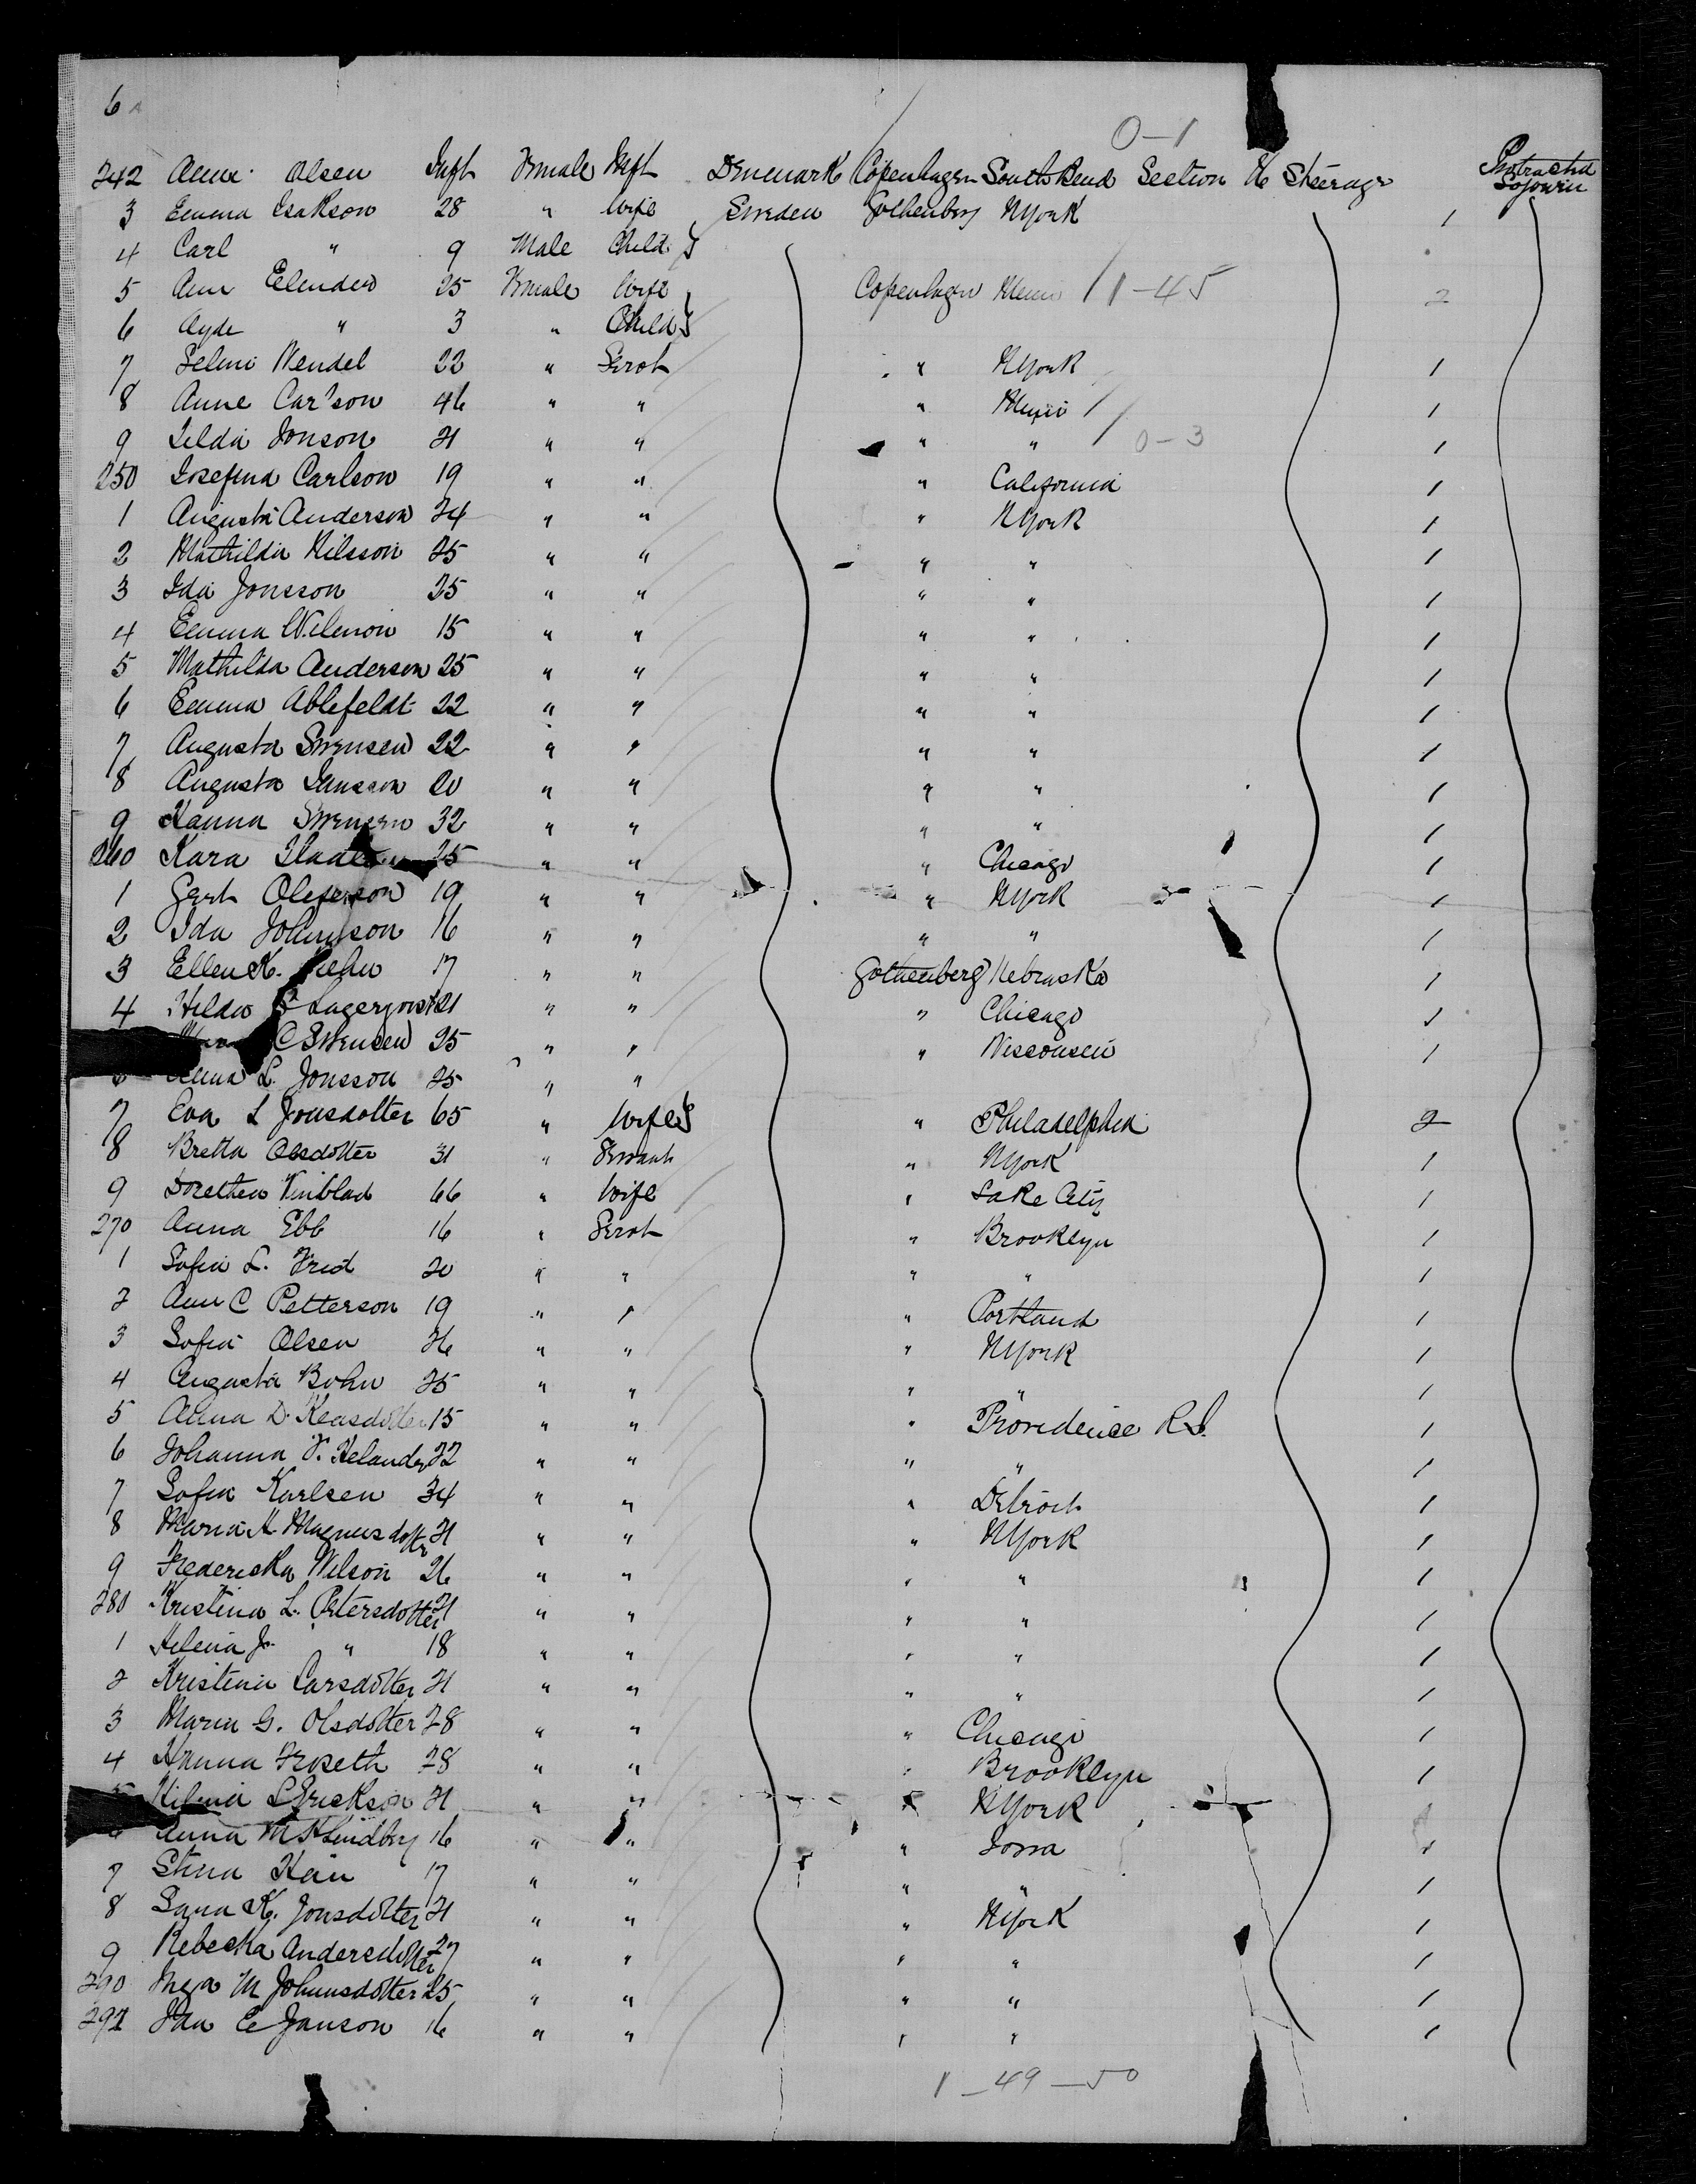 6
0-1
242 Olsen Inft Female Inft Denmark Copenhagen South Bend Section K Steerage Protracted Sojourn
3 Emma Isakson 28 " Wife Sweden Gothenberg NYork 1
4 Carl " 9 Male Child
5 Ann Elender 25 Female Wife Copenhagen 1-45 2
6 " 3 " Child
7 Selma Wendel 22 " Servt " NYork 1
8 Anne Carlson 46 " " " 1
9 Tilda Jonson 21 " " " " 0-3 1
250 Josefina Carlson 19 " " " California 1
1 Augusta Anderson 24 " " " NYork 1
2 Mathilda Nilsson 25 " " " " 1
3 Ida Jonsson 25 " " " " 1
4 Emma 15 " " " " 1
5 Mathilda Anderson 25 " " " " 1
6 Emma Ablefeldt 22 " " " " 1
7 Augusta Svensen 22 " " " " 1
8 Augusta Jansson 20 " " " " 1
9 Hanna Svensen 32 " " " " 1
260 Kara 25 " " " Chicago 1
1 Olsen 19 " " " NYork 1
2 Ida Johnsson 16 " " " " 1
3 Ellen K. 17 " " Gothenberg Nebraska 1
4 Hilda 21 " " " Chicago 1
C Svensen 25 " " " Wisconsin 1
L. Jonsson 25 " "
7 Eva L Jonsdotter 65 " Wife " Philadelphia 2
8 Bretta Olsdotter 31 " Servant " NYork 1
9 Dorethea Vinblad 66 " Wife " Lake City 1
270 Anna Ebb 16 " Servt " Brooklyn 1
1 Sofia L. Fred 20 " " " " 1
2 Ann C Petterson 19 " " " Portland 1
3 Sofia Olsen 26 " " " NYork 1
4 Augusta Bohn 25 " " " " 1
5 Anna D. 15 " " " Providence R.I. 1
6 Johanna 22 " " " " 1
7 Sofia Karlsen 34 " " " Detroit 1
8 Maria A Magnusdottr 21 " " " NYork 1
9 Frederika Nilson 26 " " " " 1
280 Kristina L. Petersdotter 21 " " " " 1
1 Helena Jr. " 18 " " " " 1
2 Kristina Larsdotter 21 " " " " 1
3 Maria G. Olsdotter 28 " " " Chicago 1
4 Hanna Froseth 28 " " " Brooklyn 1
Erickson 21 " " " NYork 1
Anna M Lindberg 16 " " " Iowa 1
7 Stina 17 " " " " 1
8 Sara K. Jonsdotter 21 " " " NYork 1
9 Rebecka Andersdotter 27 " " " " 1
290 Inga M Johansdotter 25 " " " " 1
291 Ida E Janson 16 " " " " 1
1-49-50